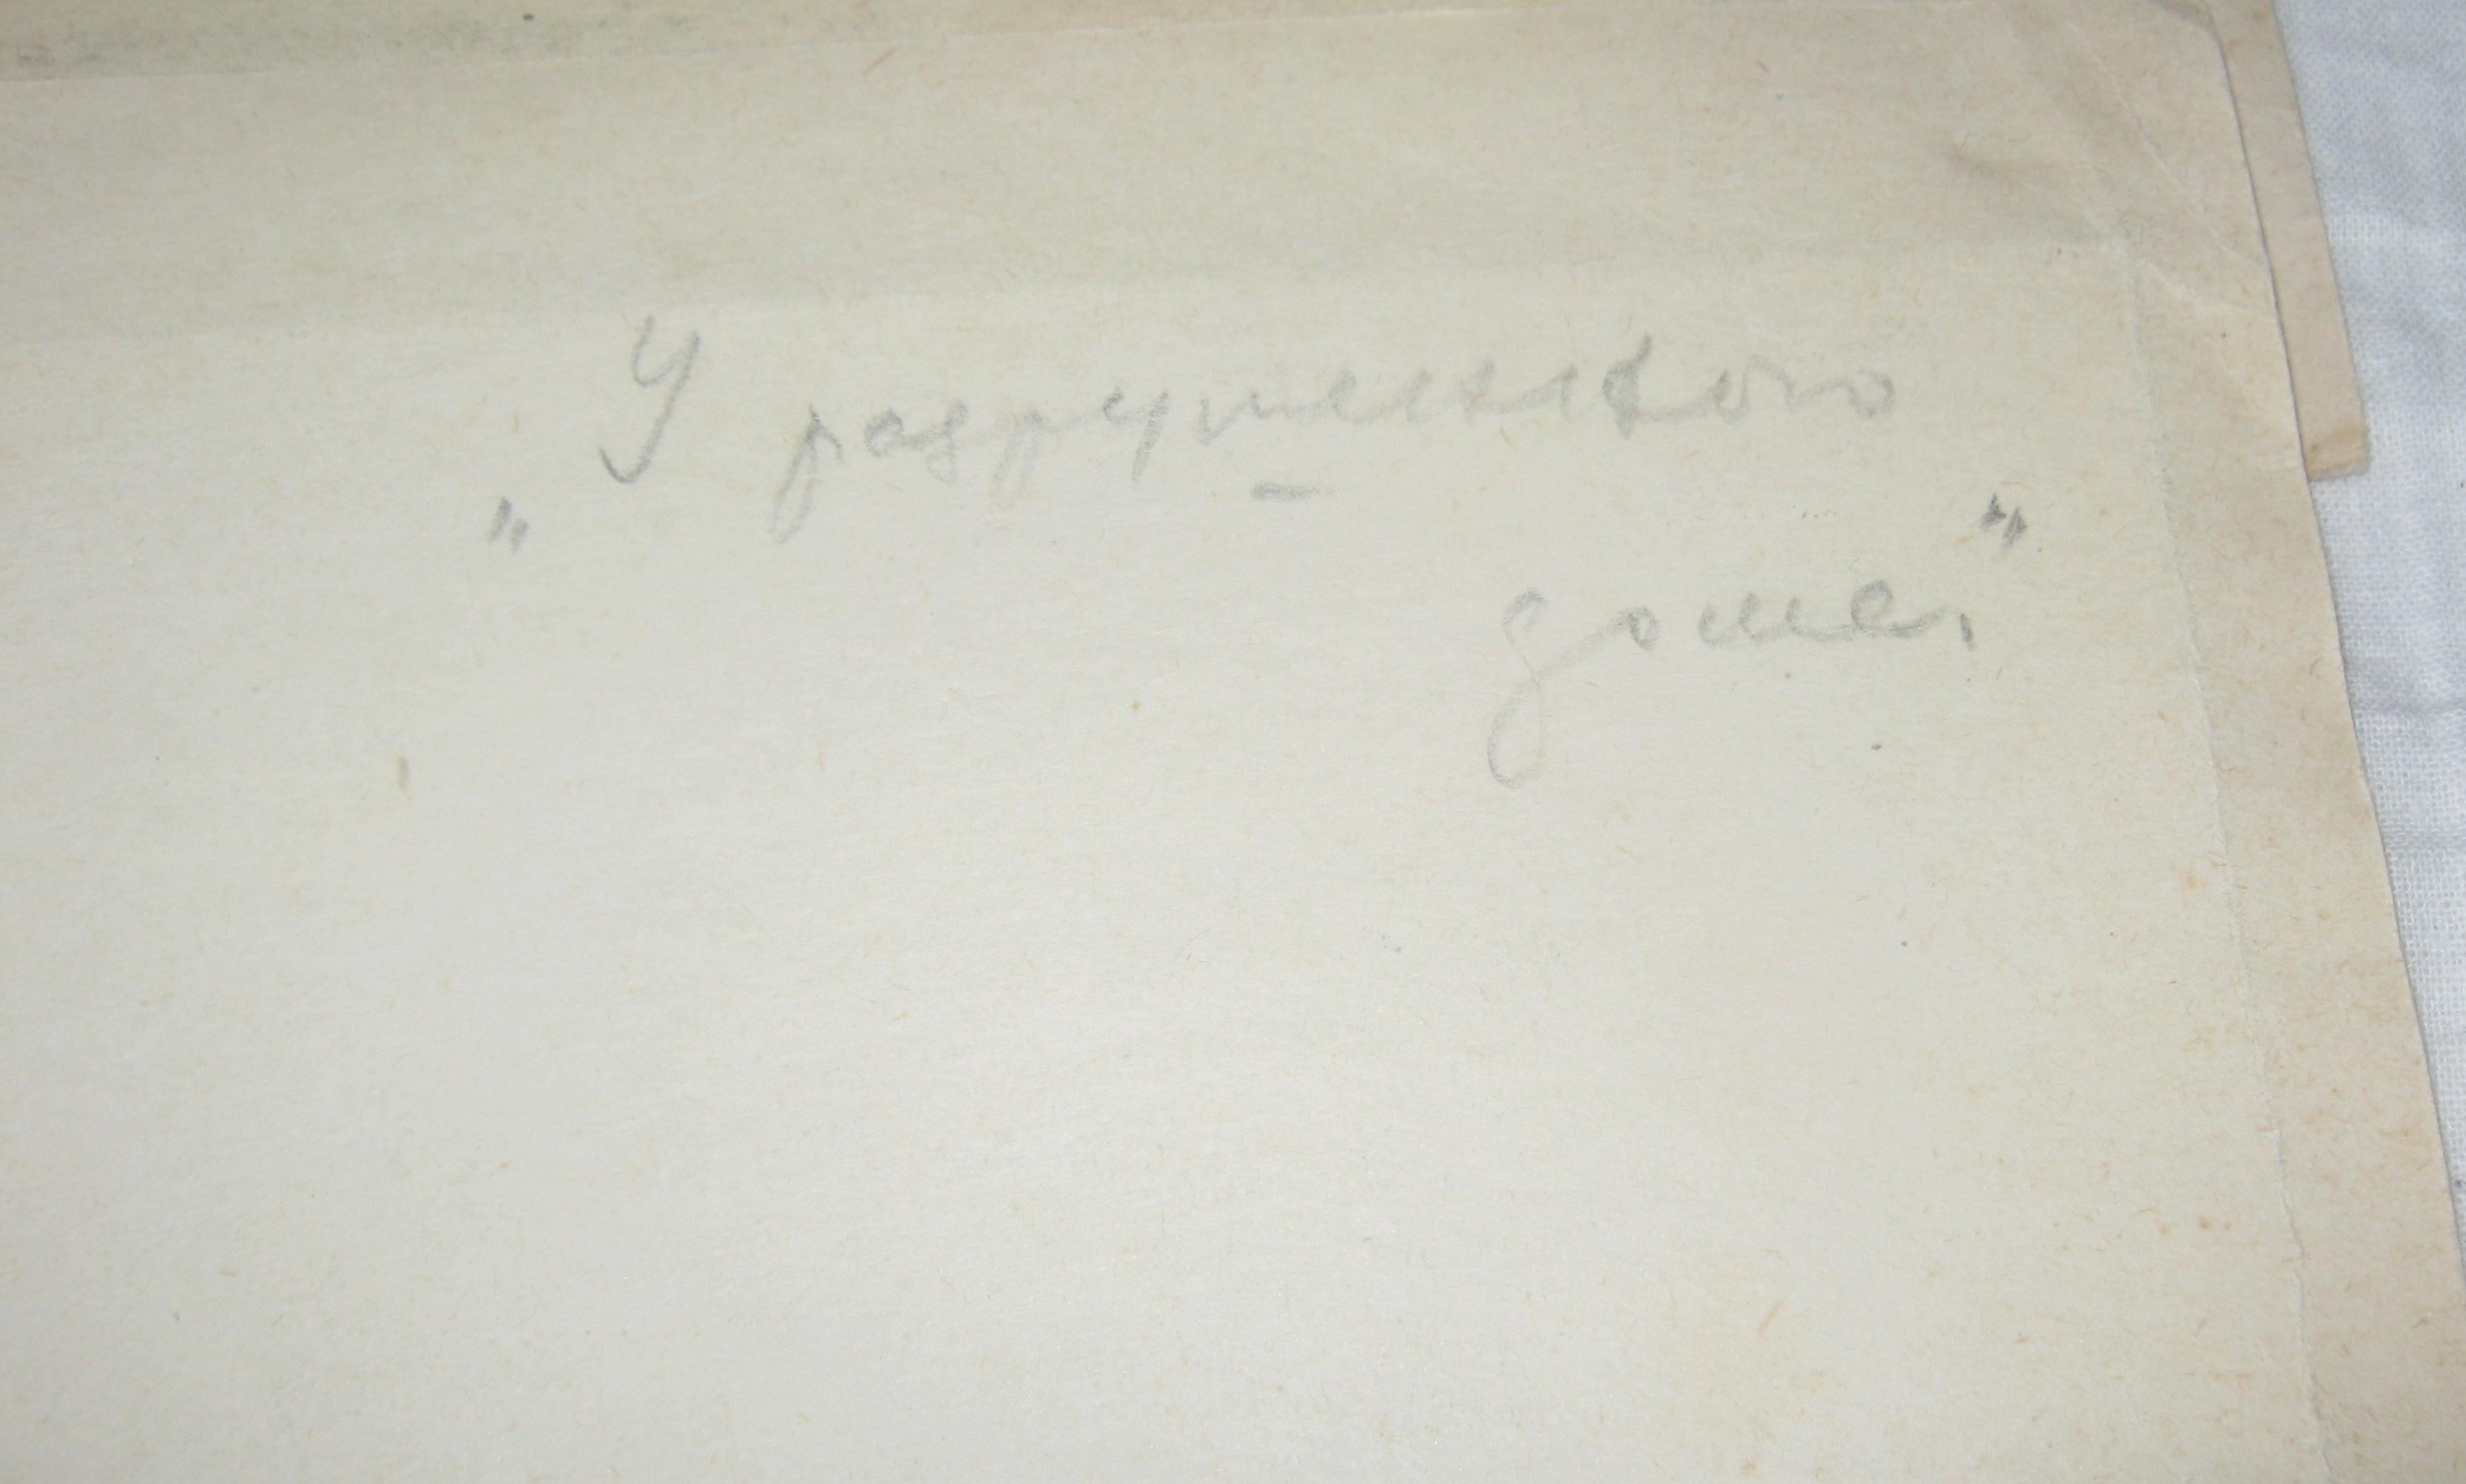 „У разрушенного
дома."